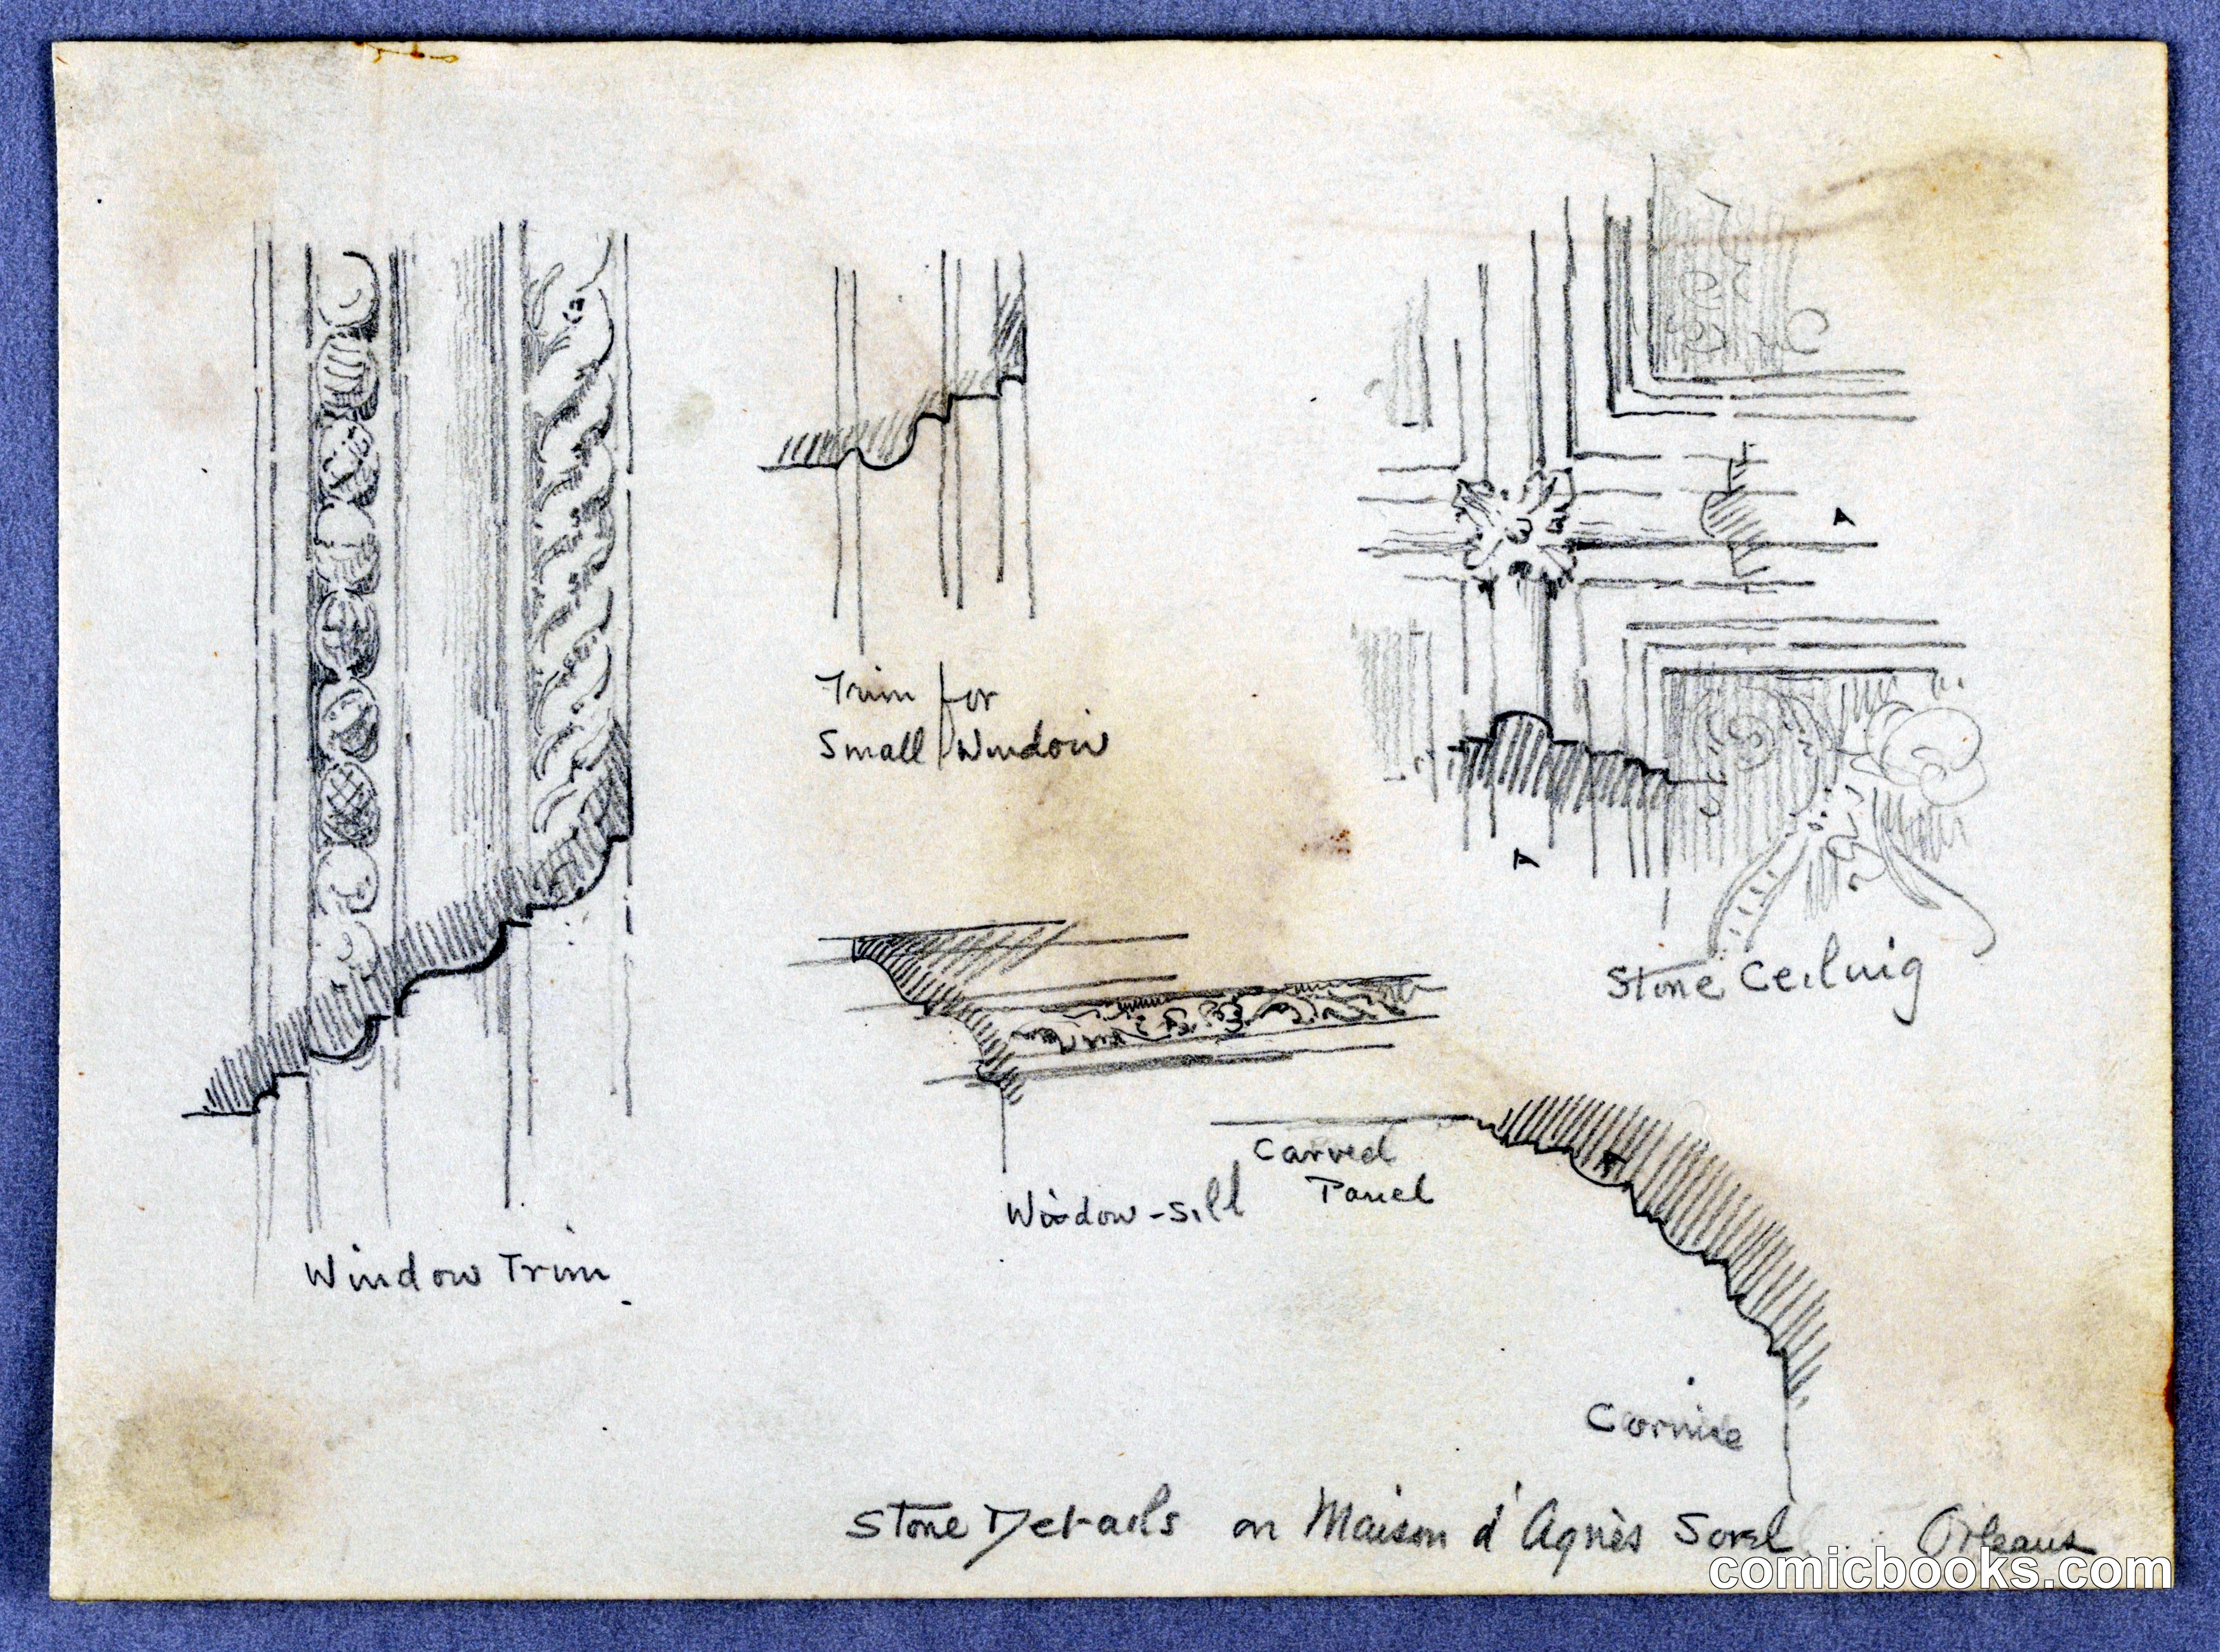 A
Trim for
Small Window
A
Stone Ceiling
Carved
Panel
Window-Sill
Window Trim
Cornice
Stone Details on Maison d'Agnès Sorel Orleans
comicbooks.com